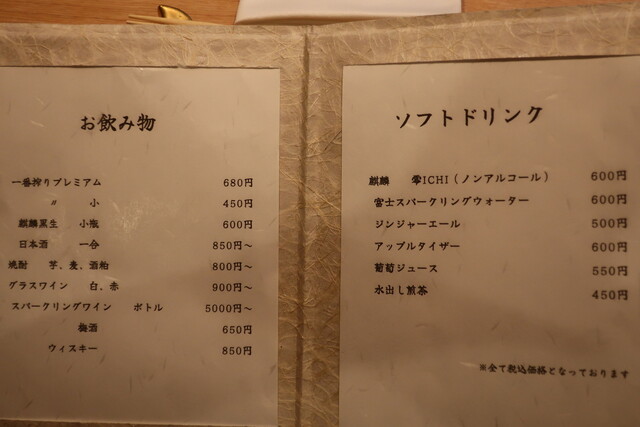 お飲み物
一番搾りプレミアム 680円
〃 小 450円
麒麟黒生 小瓶 600円
日本酒 一合 850円～
焼酎 芋、麦、酒粕 800円～
グラスワイン 白、赤 900円～
スパークリングワイン ボトル 5000円～
梅酒 650円
ウィスキー 850円
ソフトドリンク
麒麟 零ICHI（ノンアルコール） 600円
富士スパークリングウォーター 600円
ジンジャーエール 500円
アップルタイザー 600円
葡萄ジュース 550円
水出し煎茶 450円
※全て税込価格となっております